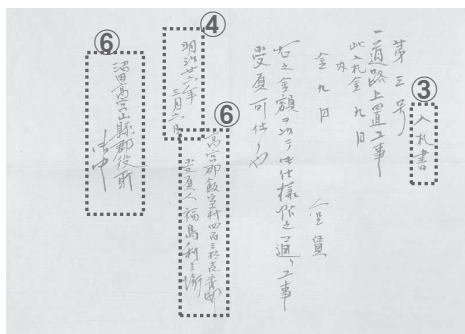 ③
入札書
第三号
一道路上置工事
此入札金九円
内
金九円 人足賃
右之金額ヲ以テ御仕様帳之通リ工事
受負可仕候也
④
明治廿六年
三月六日
⑥
高宮郡飯室村
受負人福島利三郎
⑥
沼田高宮山縣郡役所
御中